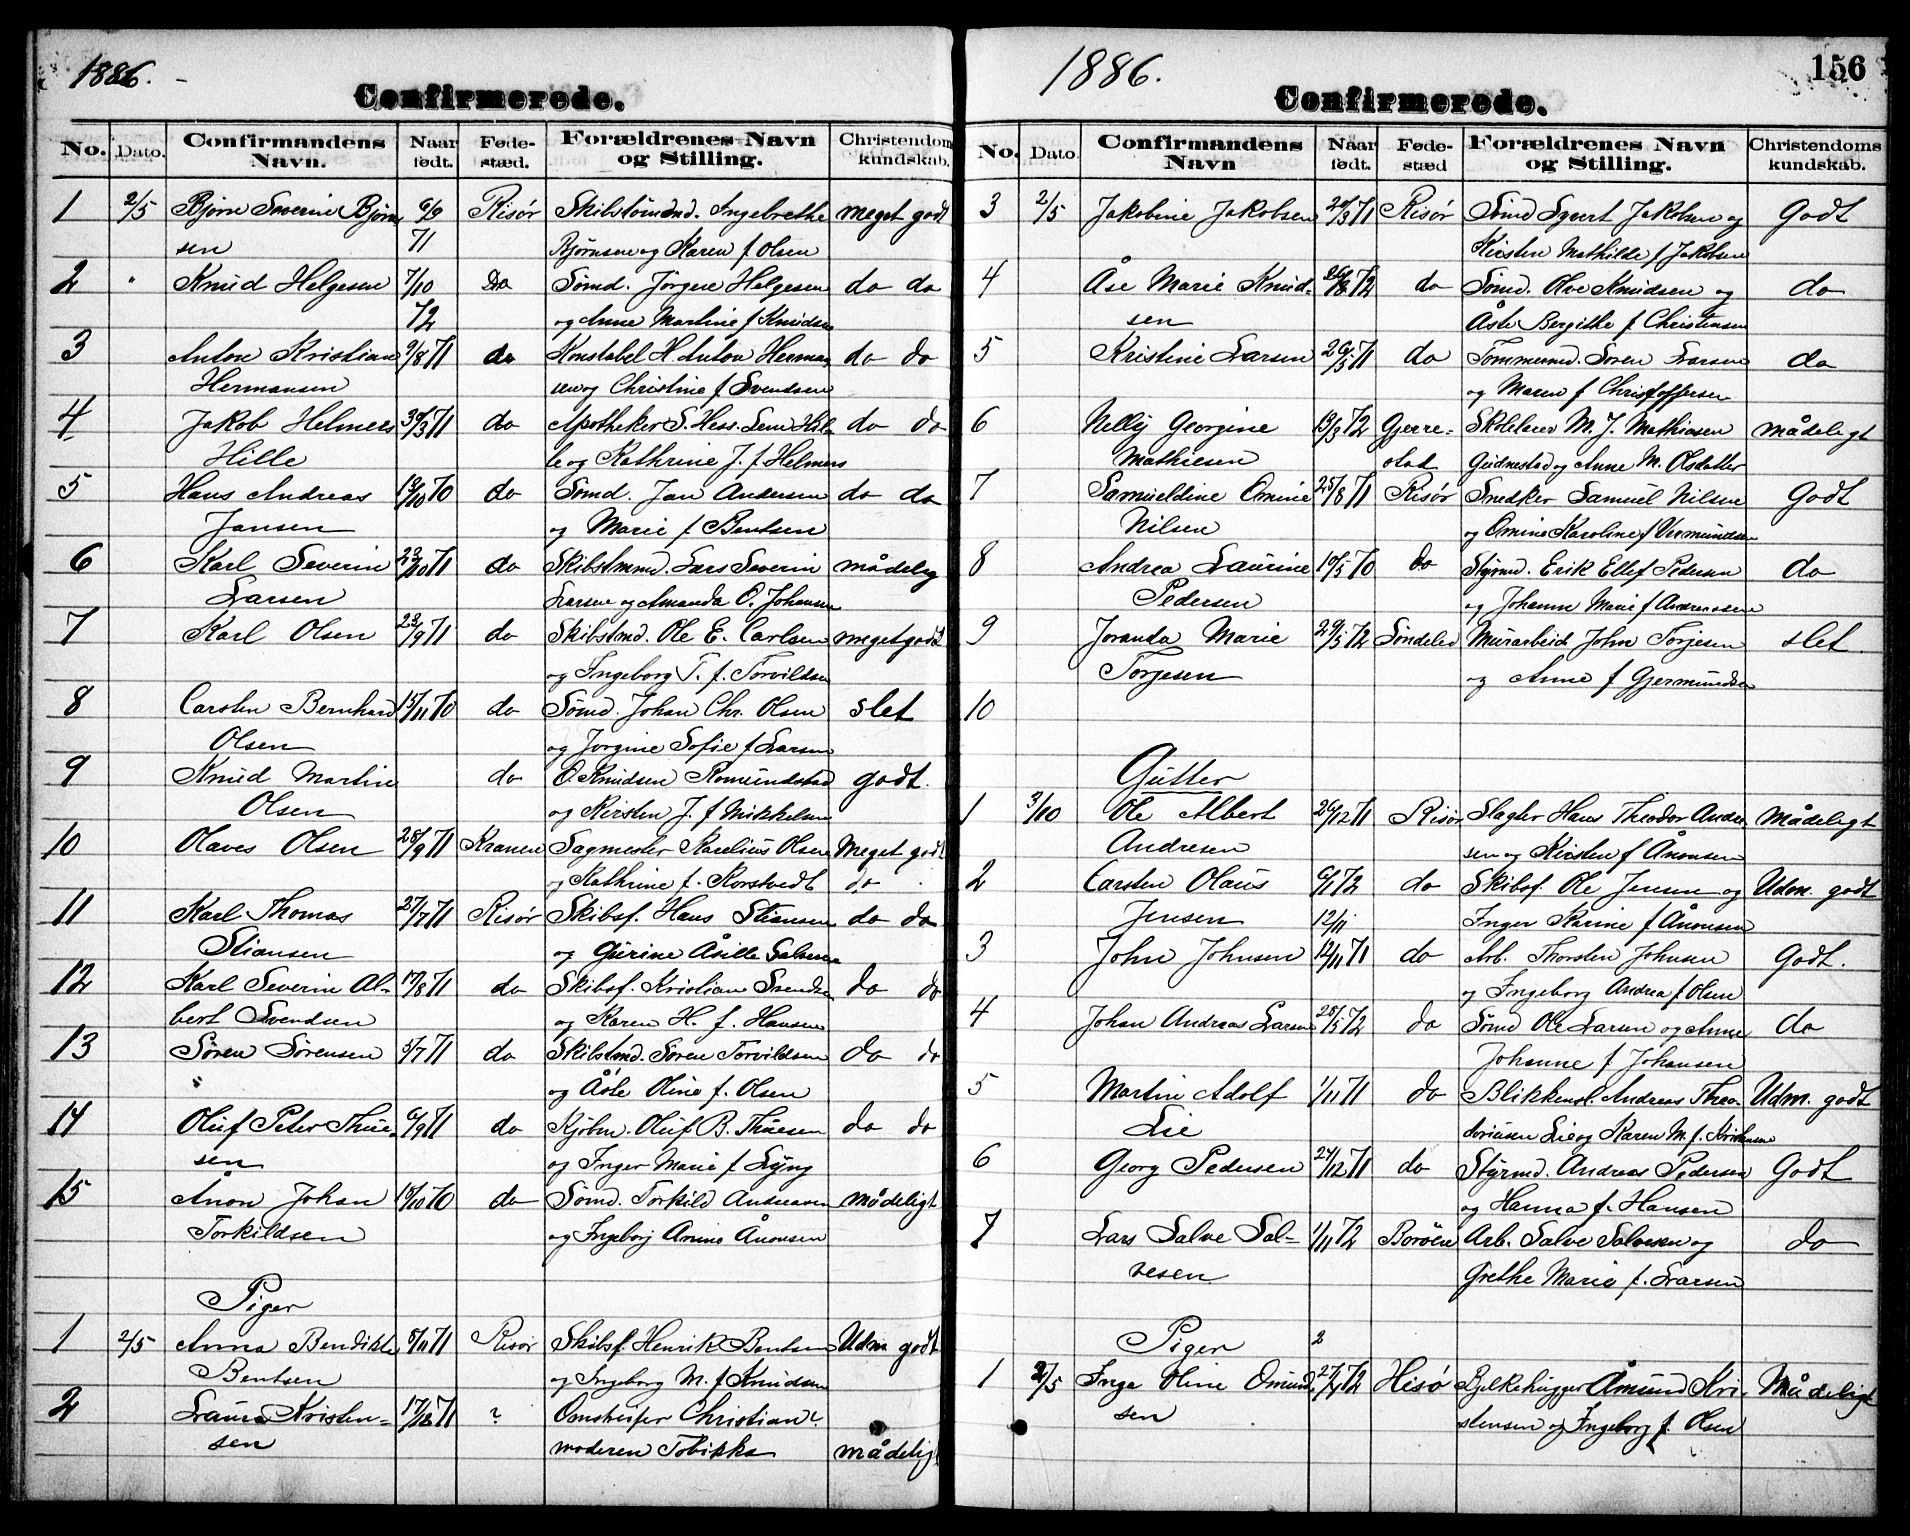 1886.
Confirmerede.
No. Dato. Confirmandens Navn. Naar født. Føde-stæd. Forældrenes Navn og Stilling. Christendoms kundskab.
1 2/5 Bjørn Severin Bjørn 6/9 Risør Skibstømmd. Ingebrethe meget godt
sen 71 Bjørnsen og Karen f. Olsen
2 " Knud Helgesen 7/10 Do Sømd. Jørgen Helgesen do do
72 og Anne Martine f Knudsen
3 Anton Kristian 9/8 71 do Konstabel H. Anton Herman do do
Hermansen sen og Christine f Svendsen
4 Jakob Helmers 30/3 71 do Apotheker S. Hess. Lem Hil do do
Hille le og Kathrine J. f Helmers
5 Hans Andreas 10 70 do Sømd. Jan Andersen do do
Jansen og Marie f Bentsen
6 Karl Severin 23/10 71 do Skibstmmd. Lars Severin mådelig
Larsen Larsen og Amanda O. Johansen
7 Karl Olsen 23/9 71 do Skibstmd. Ole E. Carlsen meget godt
og Ingeborg T. f. Torvildsen
8 Carsten Bernhard 15/11 70 do Sømd. Johan Chr. Olsen slet
Olsen og Jørgine Sofie f Larsen
9 Knud Martin do O. Knudsen Romundstad godt.
Olsen og Kirsten J. f Mikkelsen
10 Olaves Olsen 28/9 71 Kranen Sagmester Karelius Olsen Meget godt
og Kathrine f. Korstvedt do
11 Karl Thomas 27/7 71 Risør Skibsf. Hans Stiansen do do
Stiansen og Gurine Åsille Salvesen
12 Karl Severin Al- 17/8 71 do Skibsf. Kristian Svendsen do do
bert Svendsen og Karen H. f. Hansen
13 Søren Sørensen 5/7 71 do Skibstmd. Søren Torvildsen do do
" og Åsle Oline f. Olsen
14 Oluf Peter Thue- 6/9 71 do Kjøbm. Oluf B. Thuesen do do
sen og Inger Marie f Lyng
15 Ånon Johan 15/10 70 do Sømd. Torkild Andreasen mådeligt
Torkildsen og Ingeborg Amine Ånonsen
Piger
1 2/5 Anna Bendikte 8/11 71 Risør Skibsf. Henrik Bentsen Udm godt
Bentsen og Ingeborg M. f Knudsen
2 Laura Kristen- 17/12 71 ? Omstreifer Christian ?
sen moderen Tobikka mådelig
1886. 156
Confirmerede.
No. Dato Confirmandens Navn Naar født. Føde-stæd Forældrenes Navn og Stilling. Christendoms kundskab.
3 2/5 Jakobine Jakobsen 20/3 71 Risør Sømd Syvert Jakobsen og Godt
Kirsten Mathilde f Jakobsen
4 Åse Marie Knud- 26/8 72 do Sømd. Ole Knudsen og do
sen Åste Bergithe f. Christensen
5 Kristine Larsen 26/5 71 do Tømmermd. Søren Larsen do
og Maren f Christoffersen
6 Nelly Georgine 13/3 72 Gjerre- Skolelærer M. J. Mathiesen mådeligt
Mathiesen stad Gudmestad og Anne M. Olsdatter
7 Samueldine Omine 25/8 71 Risør Snedker Samuel Nilsen Godt
Nilsen og Omine Karoline f Vermundsen
8 Andrea Laurine 10/5 70 do Styrmd. Erik Ellef Pedersen do
Pedersen og Johanne Marie f Andreassen
9 Joranda Marie 29/5 72 Søndeled Murarbeid John Torjesen slet
Torjesen og Anne f Gjermundsen
10
Gutter
1 3/10 Ole Albert 26/12 71 Risør Slagter Hans Theodor Andre Mådeligt
Andresen sen og Kirsten f Ånonsen
2 Carsten Olaus 6/1 72 do Skibsf. Ole Jensen og Udm. godt
Jensen 12/11 Inger Karine f Ånonsen
3 John Johnsen 12/11 71 do Arb. Thorsten Johnsen Godt.
og Ingeborg Andrea f Olsen
4 Johan Andreas Larsen 25/5 72 do Sømd Ole Larsen og Anne do
Johanne f Johansen
5 Martin Adolf 1/11 71 do Blikkensl. Andreas Theo- Udm. godt
Lie doriusen Lie og Karen M. f. Kristensen
6 Georg Pedersen 24/12 71 do Styrmd. Andreas Pedersen Godt
og Hanna f. Hansen
7 Lars Salve Sal- 1/11 72 Borøen Arb. Salve Salvesen og do
vesen Grethe Marie f. Larsen
Piger 2
1 2/5 Inga Oline Omund 27/1 72 Hisø Bjelkehugger Åmund Kri- Mådeligt
sen stensen og Ingeborg f. Olsen